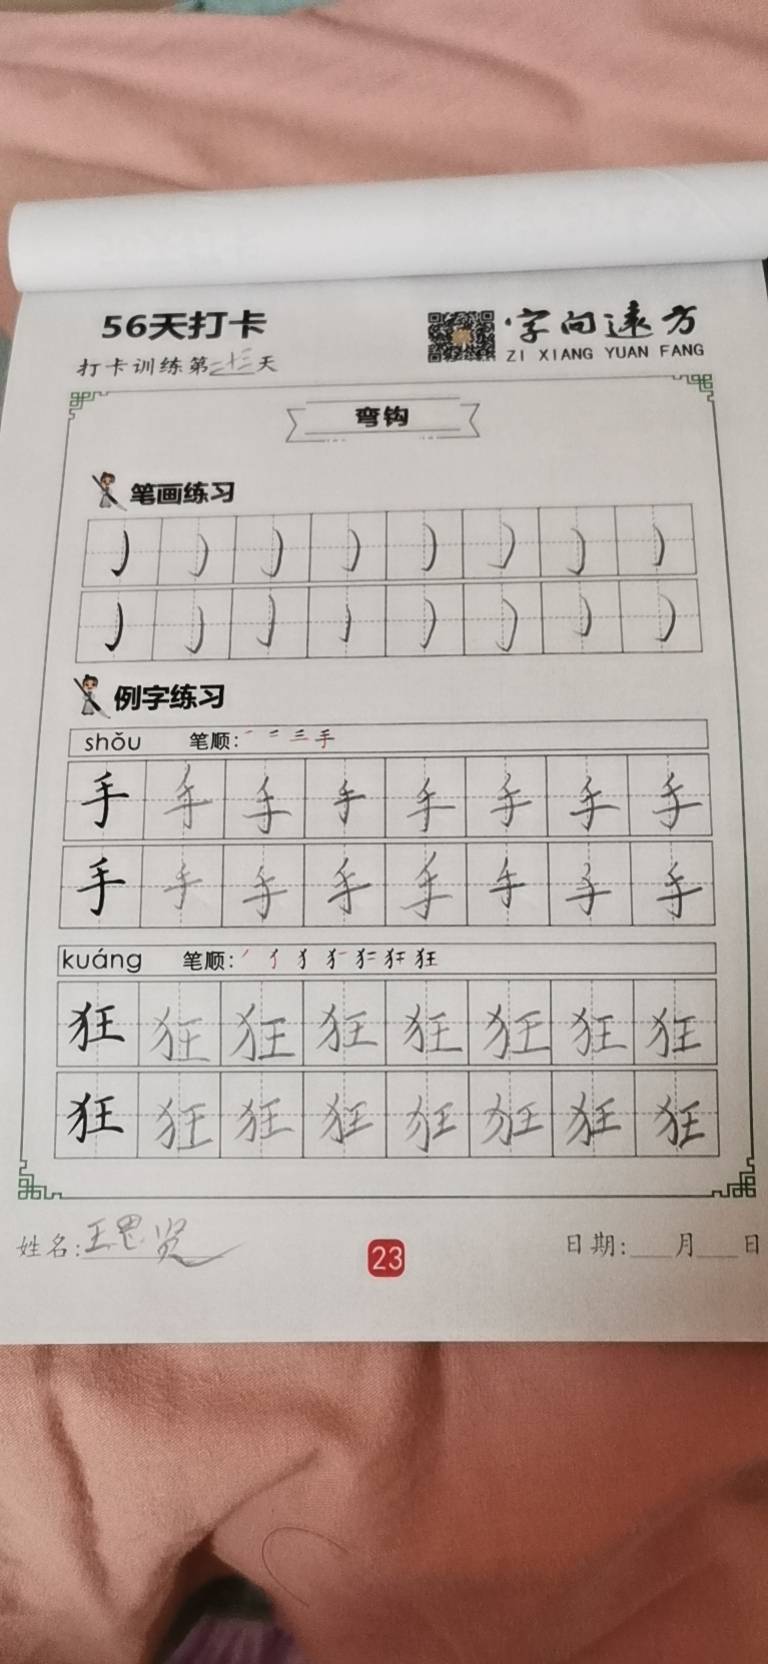 56天打卡
字向远方
打卡训练第二十三天
ZI XIANG YUAN FANG
弯钩
笔画练习
例字练习
shǒu 笔顺: 一 二 三 手
手 手 手 手 手 手 手 手
手 手 手 手 手 手 手 手
kuáng 笔顺: 狂
狂 狂 狂 狂 狂 狂 狂 狂
狂 狂 狂 狂 狂 狂 狂 狂
姓名:王思贤
23
日期: 月 日